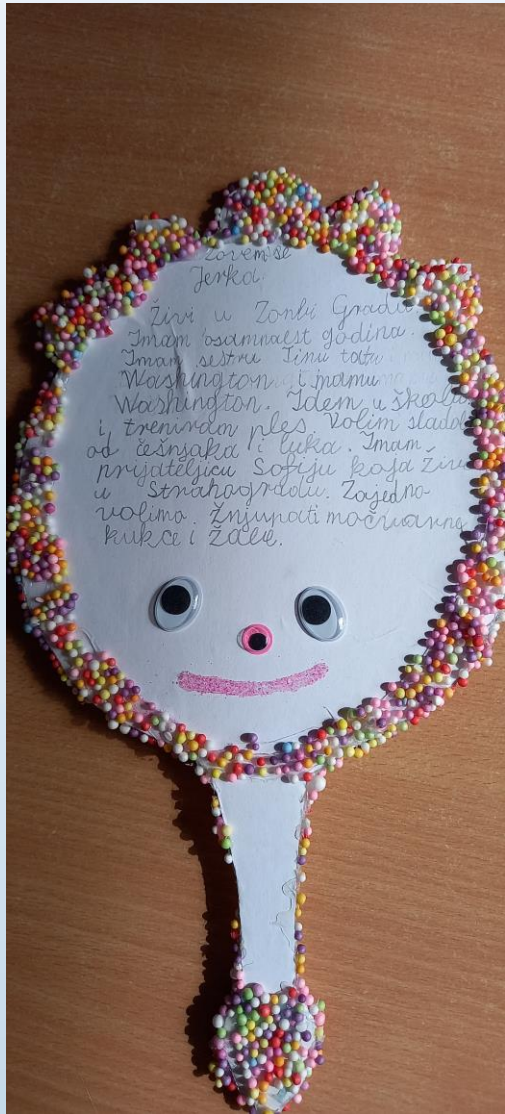 Zovem se
Jerka.
Živi u Zombi Gradu.
Imam osamnaest godina.
Imam sestru Tinu tatu
Washington i mamu
Washington. Idem u školu
i treniram ples. Volim sladol
od češnjaka i luka. Imam
prijateljicu Sofiju koja živi
u Strahogradu. Zajedno
volimo žnjupati močvarne
kukce i žabe.